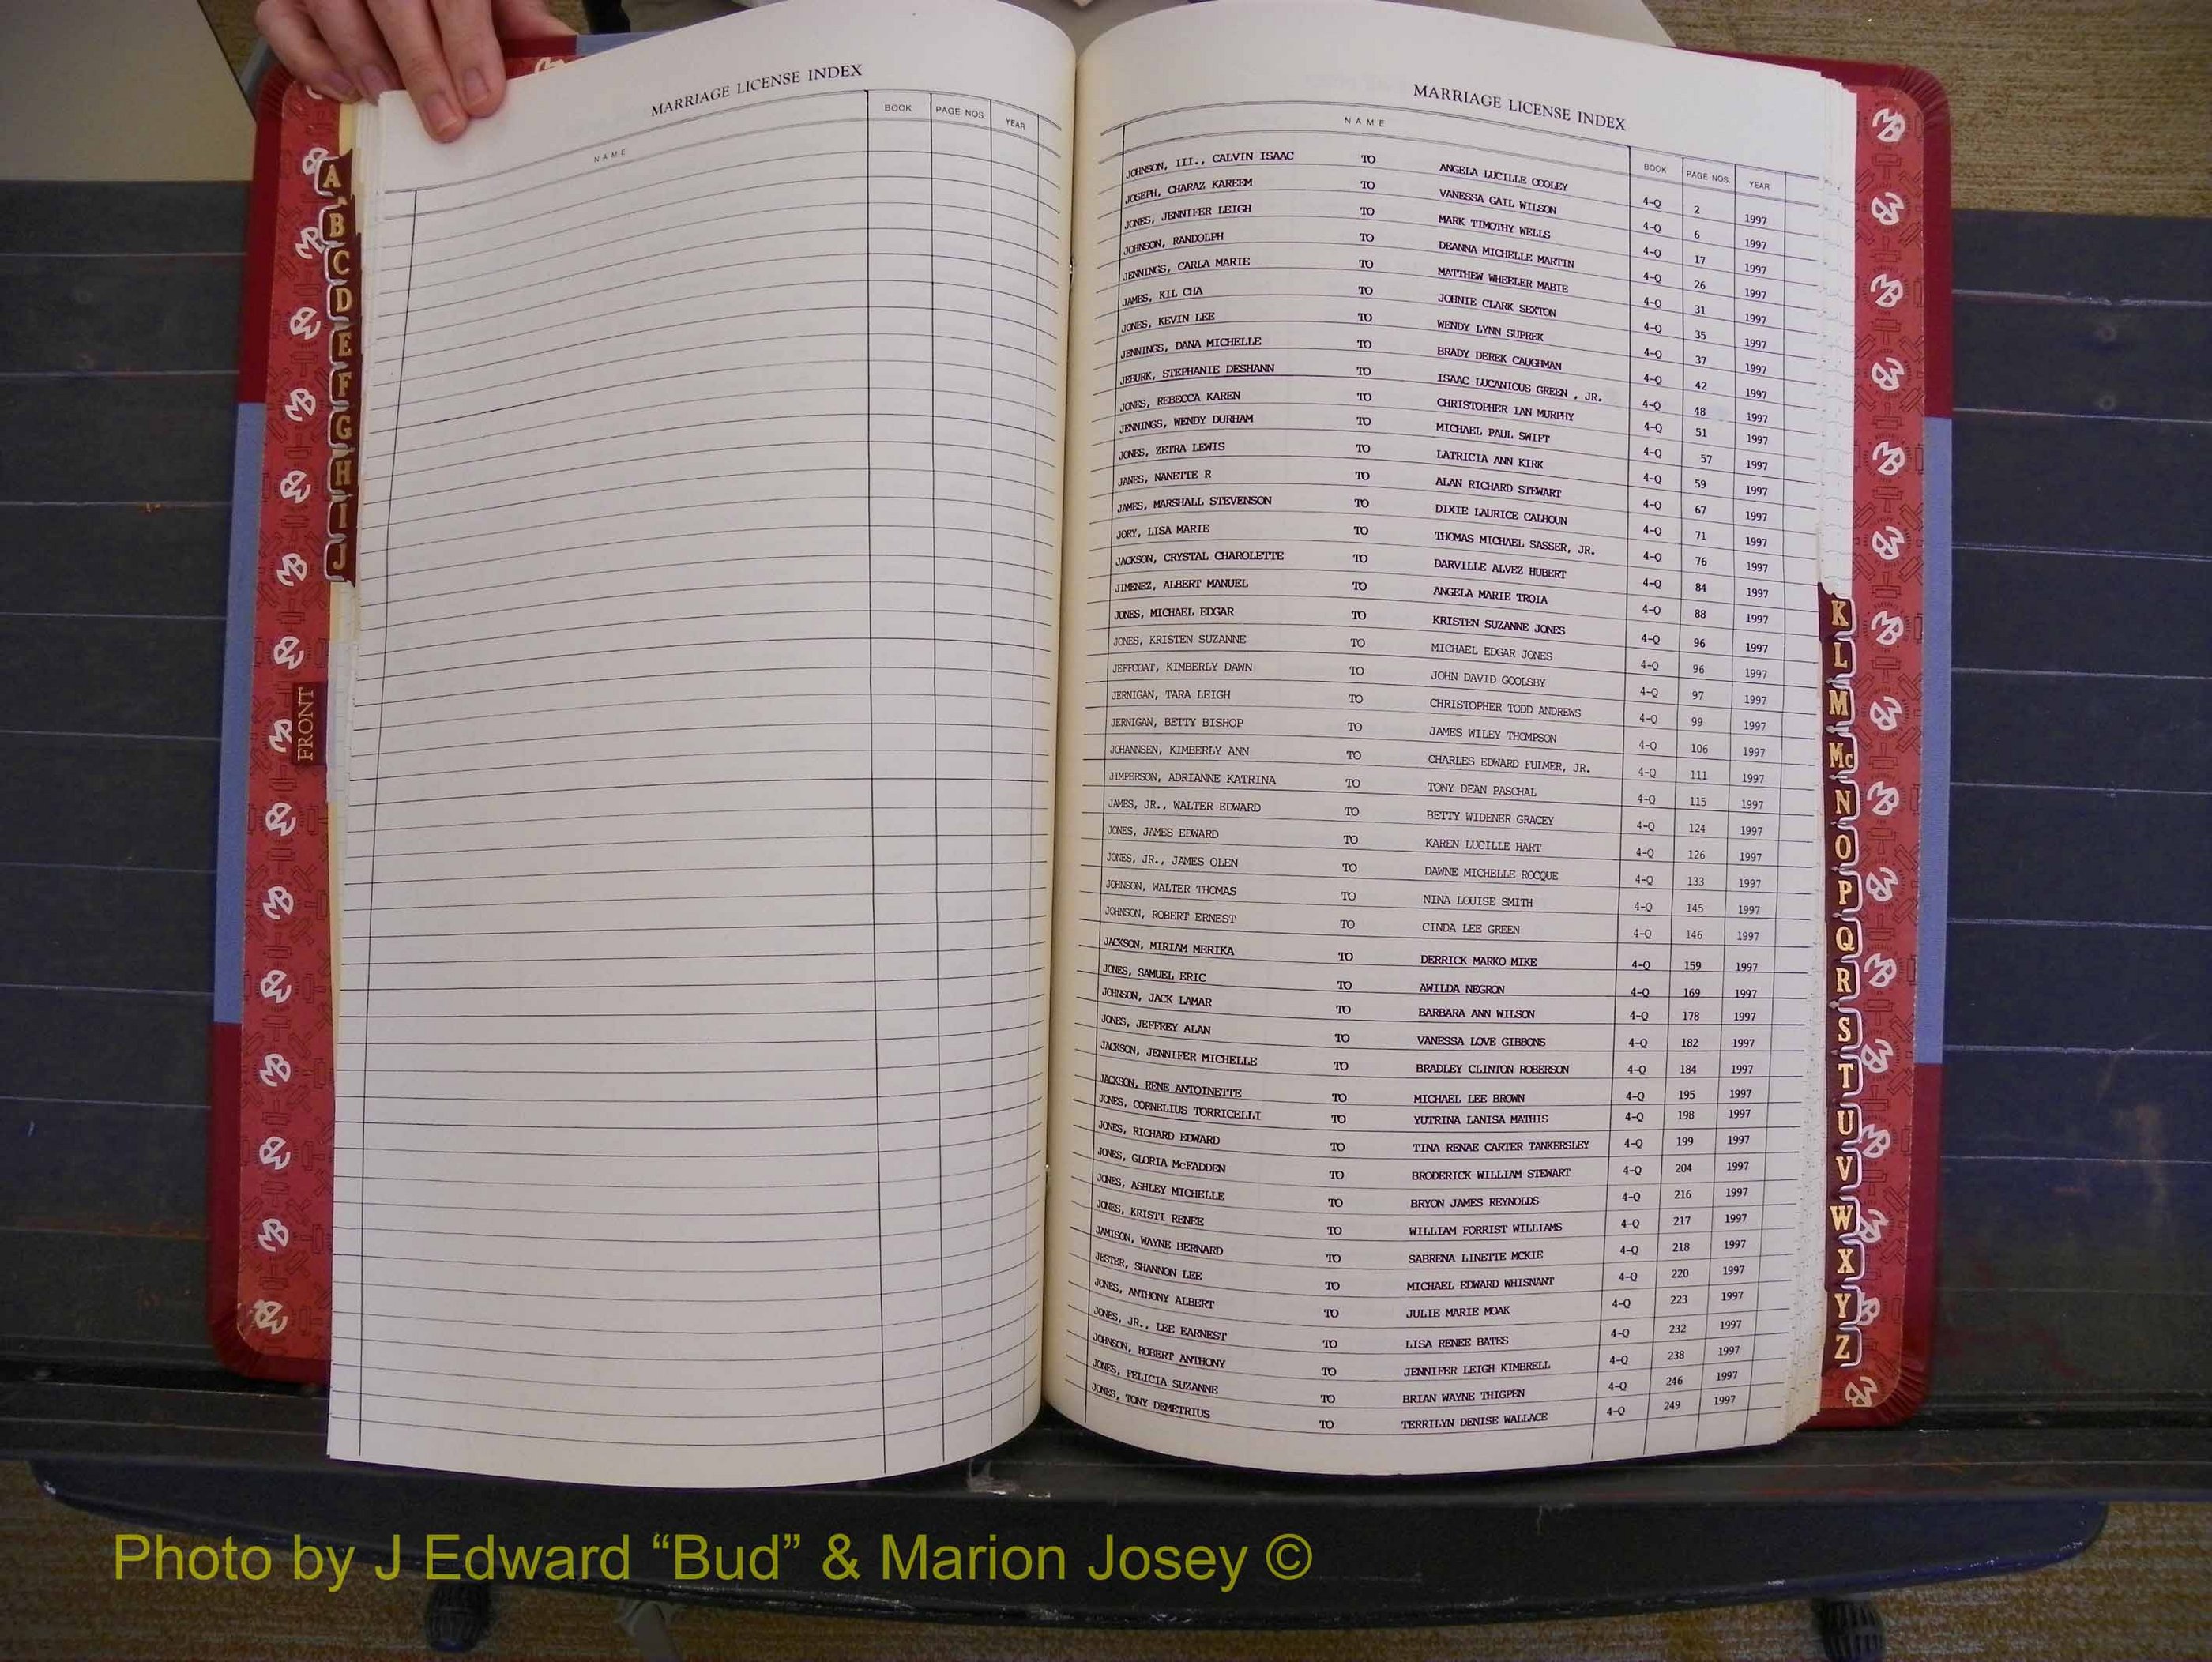 MARRIAGE LICENSE INDEX
NAME BOOK PAGE NOS. YEAR
A
B
C
D
E
F
G
H
I
J
FRONT
MARRIAGE LICENSE INDEX
NAME BOOK PAGE NOS. YEAR
JOHNSON, III., CALVIN ISAAC TO ANGELA LUCILLE COOLEY 4-Q 2 1997
JOSEPH, CHARAZ KAREEM TO VANESSA GAIL WILSON 4-Q 6 1997
JONES, JENNIFER LEIGH TO MARK TIMOTHY WELLS 4-Q 17 1997
JOHNSON, RANDOLPH TO DEANNA MICHELLE MARTIN 4-Q 26 1997
JENNINGS, CARLA MARIE TO MATTHEW WHEELER MABIE 4-Q 31 1997
JAMES, KIL CHA TO JOHNIE CLARK SEXTON 4-Q 35 1997
JONES, KEVIN LEE TO WENDY LYNN SUPREK 4-Q 37 1997
JENNINGS, DANA MICHELLE TO BRADY DEREK CAUGHMAN 4-Q 42 1997
JEBURK, STEPHANIE DESHANN TO ISAAC LUCANIOUS GREEN , JR. 4-Q 48 1997
JONES, REBECCA KAREN TO CHRISTOPHER IAN MURPHY 4-Q 51 1997
JENNINGS, WENDY DURHAM TO MICHAEL PAUL SWIFT 4-Q 57 1997
JONES, ZETRA LEWIS TO LATRICIA ANN KIRK 4-Q 59 1997
JANES, NANETTE R TO ALAN RICHARD STEWART 4-Q 67 1997
JAMES, MARSHALL STEVENSON TO DIXIE LAURICE CALHOUN 4-Q 71 1997
JORY, LISA MARIE TO THOMAS MICHAEL SASSER, JR. 4-Q 76 1997
JACKSON, CRYSTAL CHAROLETTE TO DARVILLE ALVEZ HUBERT 4-Q 84 1997
JIMENEZ, ALBERT MANUEL TO ANGELA MARIE TROIA 4-Q 88 1997
JONES, MICHAEL EDGAR TO KRISTEN SUZANNE JONES 4-Q 96 1997
JONES, KRISTEN SUZANNE TO MICHAEL EDGAR JONES 4-Q 96 1997
JEFFCOAT, KIMBERLY DAWN TO JOHN DAVID GOOLSBY 4-Q 97 1997
JERNIGAN, TARA LEIGH TO CHRISTOPHER TODD ANDREWS 4-Q 99 1997
JERNIGAN, BETTY BISHOP TO JAMES WILEY THOMPSON 4-Q 106 1997
JOHANNSEN, KIMBERLY ANN TO CHARLES EDWARD FULMER, JR. 4-Q 111 1997
JIMPERSON, ADRIANNE KATRINA TO TONY DEAN PASCHAL 4-Q 115 1997
JAMES, JR., WALTER EDWARD TO BETTY WIDENER GRACEY 4-Q 124 1997
JONES, JAMES EDWARD TO KAREN LUCILLE HART 4-Q 126 1997
JONES, JR., JAMES OLEN TO DAWNE MICHELLE ROCQUE 4-Q 133 1997
JOHNSON, WALTER THOMAS TO NINA LOUISE SMITH 4-Q 145 1997
JOHNSON, ROBERT ERNEST TO CINDA LEE GREEN 4-Q 146 1997
JACKSON, MIRIAM MERIKA TO DERRICK MARKO MIKE 4-Q 159 1997
JONES, SAMUEL ERIC TO AWILDA NEGRON 4-Q 169 1997
JOHNSON, JACK LAMAR TO BARBARA ANN WILSON 4-Q 178 1997
JONES, JEFFREY ALAN TO VANESSA LOVE GIBBONS 4-Q 182 1997
JACKSON, JENNIFER MICHELLE TO BRADLEY CLINTON ROBERSON 4-Q 184 1997
JACKSON, RENE ANTOINETTE TO MICHAEL LEE BROWN 4-Q 195 1997
JONES, CORNELIUS TORRICELLI TO YUTRINA LANISA MATHIS 4-Q 198 1997
JONES, RICHARD EDWARD TO TINA RENAE CARTER TANKERSLEY 4-Q 199 1997
JONES, GLORIA McFADDEN TO BRODERICK WILLIAM STEWART 4-Q 204 1997
JONES, ASHLEY MICHELLE TO BRYON JAMES REYNOLDS 4-Q 216 1997
JONES, KRISTI RENEE TO WILLIAM FORRIST WILLIAMS 4-Q 217 1997
JAMISON, WAYNE BERNARD TO SABRENA LINETTE MCKIE 4-Q 218 1997
JESTER, SHANNON LEE TO MICHAEL EDWARD WHISNANT 4-Q 220 1997
JONES, ANTHONY ALBERT TO JULIE MARIE MOAK 4-Q 223 1997
JONES, JR., LEE EARNEST TO LISA RENEE BATES 4-Q 232 1997
JOHNSON, ROBERT ANTHONY TO JENNIFER LEIGH KIMBRELL 4-Q 238 1997
JONES, FELICIA SUZANNE TO BRIAN WAYNE THIGPEN 4-Q 246 1997
JONES, TONY DEMETRIUS TO TERRILYN DENISE WALLACE 4-Q 249 1997
K
L
M
Mc
N
O
P
Q
R
S
T
U
V
W
X
Y
Z
Photo by J Edward “Bud” & Marion Josey ©